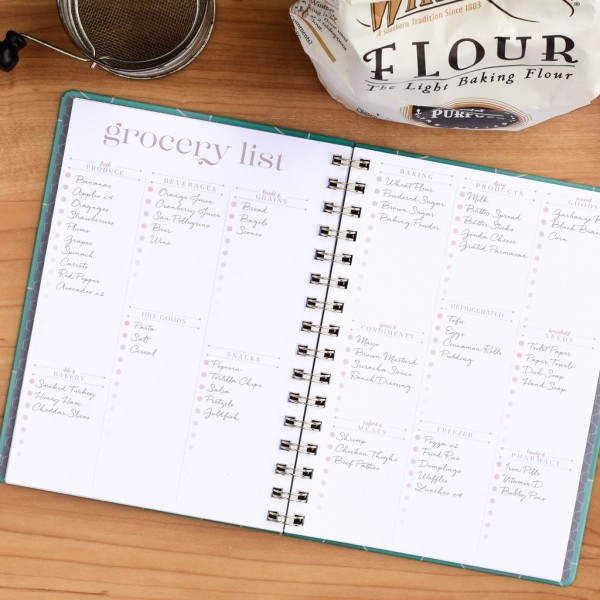 A Southern Tradition Since 1883
FLOUR
The Light Baking Flour
grocery list
fresh
PRODUCE
Bananas
Apples x4
Oranges
Strawberries
Plums
Grapes
Spinach
Carrots
Red Pepper
Avocados x2
BEVERAGES
Orange Juice
Cranberry Juice
San Pellegrino
Beer
Wine
breads &
GRAINS
Bread
Bagels
Scones
DRY GOODS
Pasta
Salt
Cereal
deli &
BAKERY
Smoked Turkey
Honey Ham
Cheddar Slices
SNACKS
Popcorn
Tortilla Chips
Salsa
Pretzels
Goldfish
BAKING
Wheat Flour
Powdered Sugar
Brown Sugar
Baking Powder
dairy
PRODUCTS
Milk
Butter Spread
Butter Sticks
Gouda Cheese
Grated Parmesan
canned
GOODS
Garbanzo B
Black Beans
Corn
CONDIMENTS
Mayo
Brown Mustard
Sriracha Sauce
Ranch Dressing
REFRIGERATED
Tofu
Eggs
Cinnamon Rolls
Pudding
household
NEEDS
Toilet Paper
Paper Towels
Dish Soap
Hand Soap
seafood &
MEATS
Shrimp
Chicken Thighs
Beef Patties
FREEZER
Pizza x2
Fried Rice
Dumplings
Waffles
Lunches x4
beauty &
PHARMACY
Iron Pills
Vitamin D
Bobby Pins